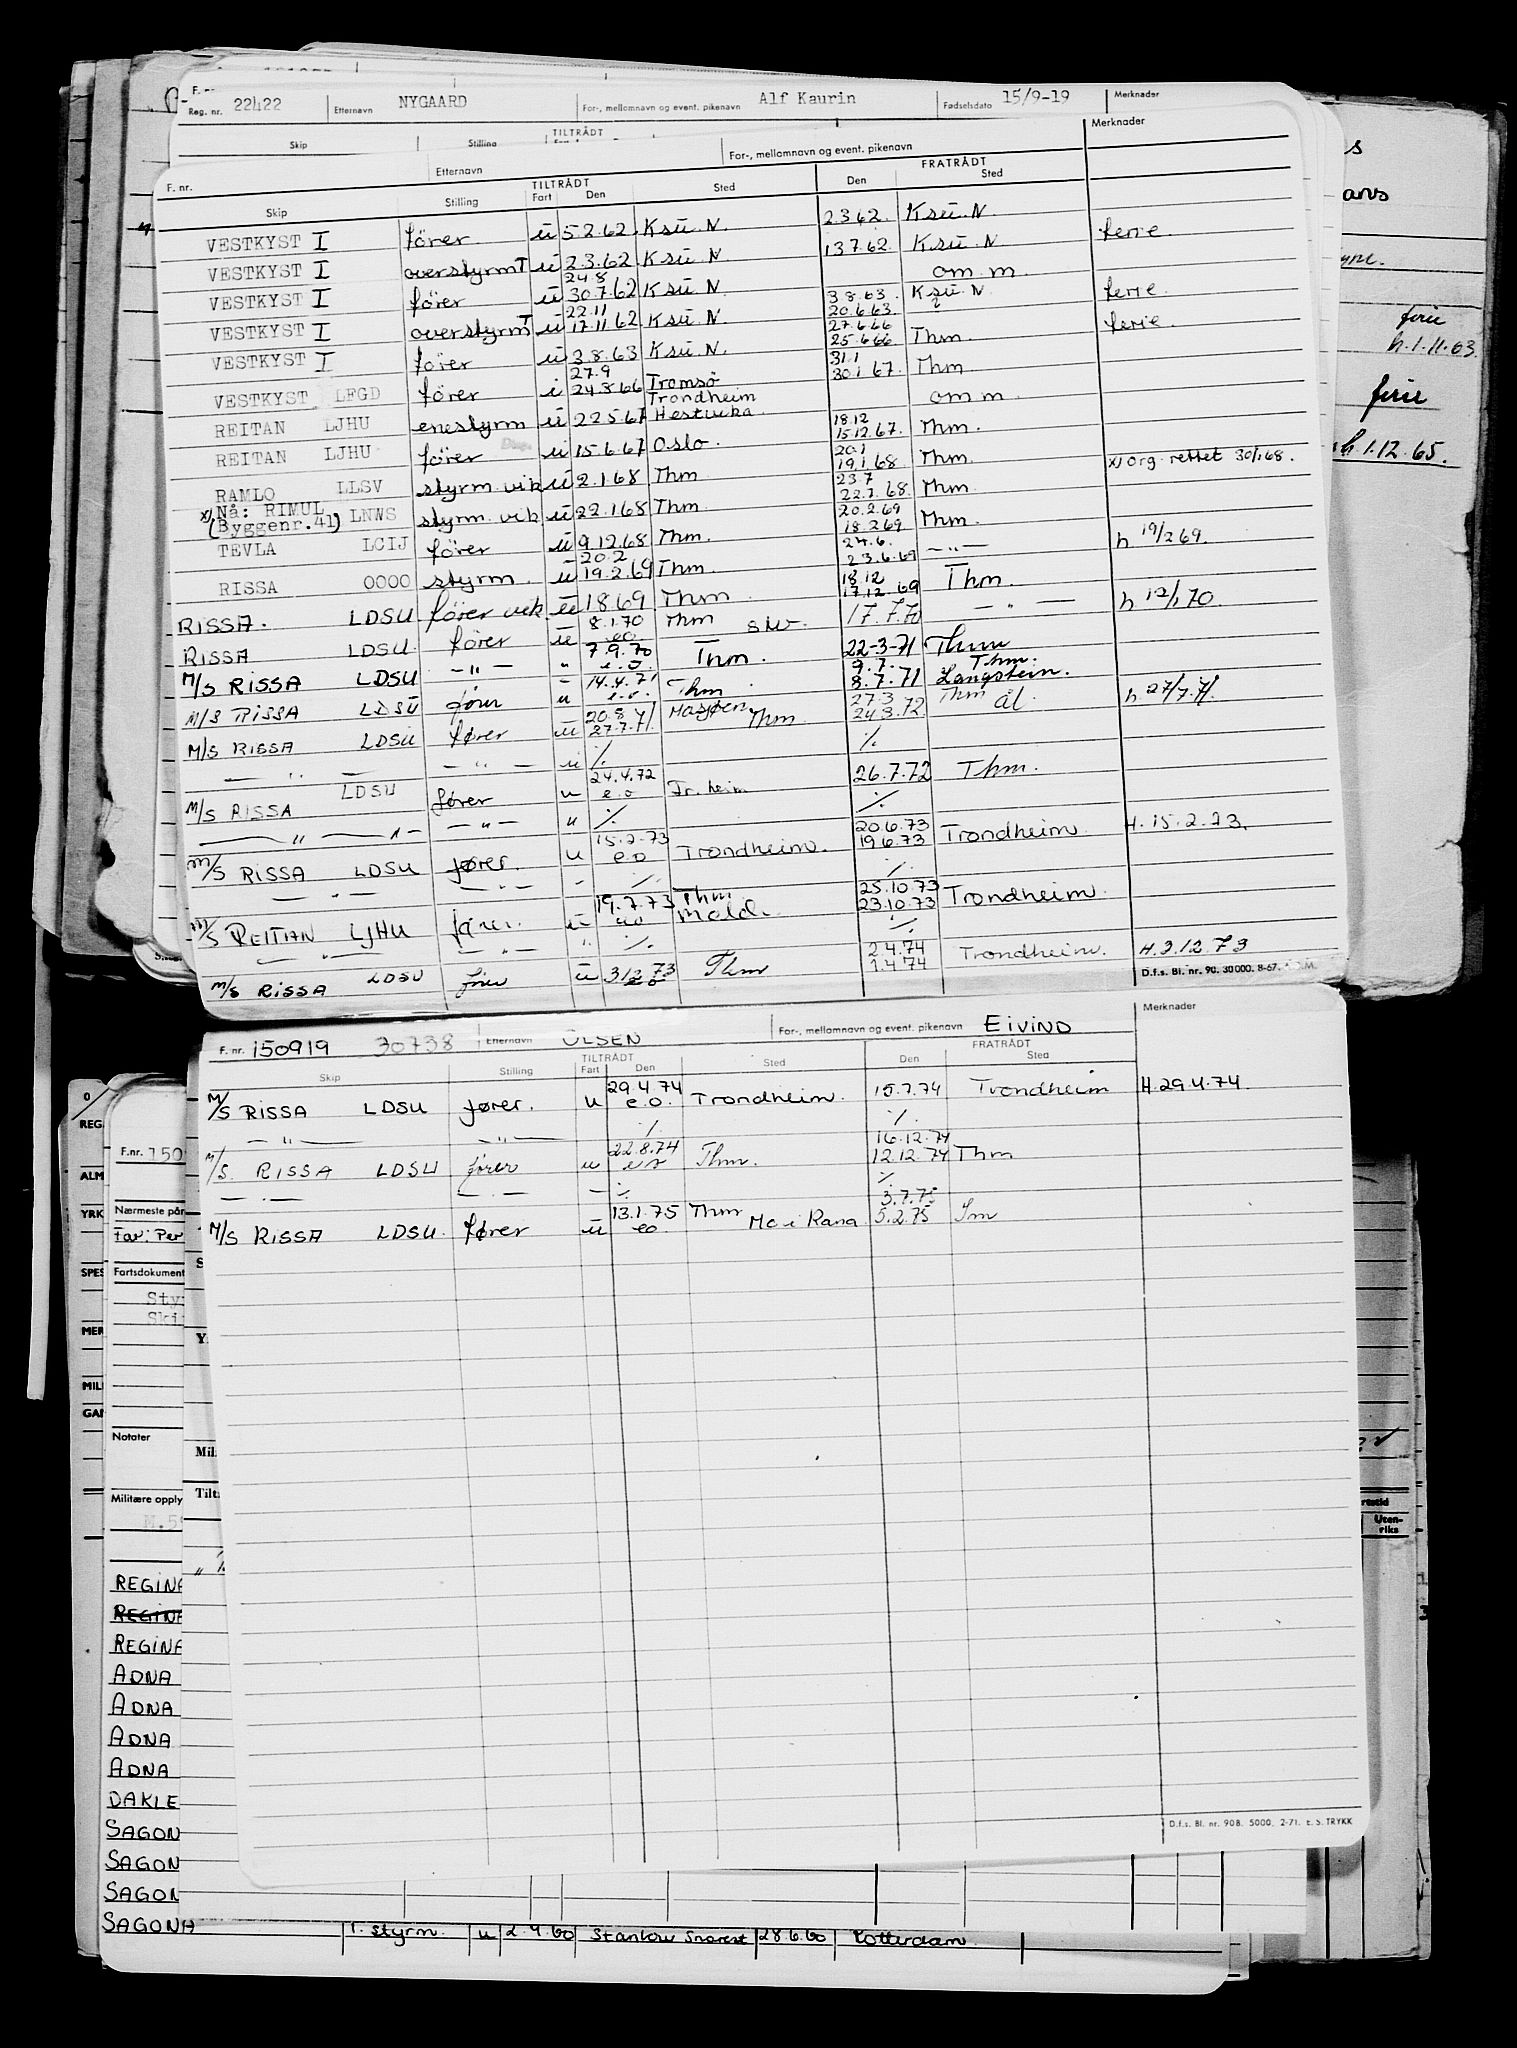 Reg. nr. 22422 Etternavn NYGAARD For-, mellomnavn og event. pikenavn Alf Kaurin Fødselsdato 15/9-19 Merknader
Skip Stilling TILTRÅDT
F. nr. Etternavn For-, mellomnavn og event. pikenavn Merknader
TILTRÅDT FRATRÅDT
Skip Stilling Fart Den Sted Den Sted
VESTKYST I fører u 5.2.62 Ksu. N. 2.3.62. Ksu. N.
VESTKYST I overstyrm u 2.3.62 Ksu N. 13.7.62. Ksu. N ferie.
24.8 om.m.
VESTKYST I fører u 30.7.62 Ksu N. 3.8.63. Ksu. N ferie.
22.11 20.6.63.
VESTKYST I overstyrm u 17.11.62 Ksu. N. 27.6.66 ferie.
VESTKYST I fører u 3.8.63 Ksu N. 25.6.66 Thm.
27.9 31.1
VESTKYST LFGD fører i 24.8.66 Tromsø 30.1.67. Thm
Trondheim
REITAN LJHU enestyrm u 22.5.67 Hestvika om m.
18.12
REITAN LJHU fører u 15.6.67 Oslo. 15.12.67. Thm.
20.1
RAMLO LLSV styrm.vik u 2.1.68 Thm 19.1.68 Thm. x) Org. rettet 30/1.68.
23.7
x) Nå: RIMUL LNWS styrm. vik u 22.1.68 Thm 22.7.68. Thm
(Byggenr.41)
20.2.69
TEVLA LCIJ fører u 9.12.68 Thm. 18.2.69 Thm.
20.2 24.6.
RISSA OOOO styrm. u 19.2.69 Thm. 23.6.69 —"— h 19/2 69.
18.12
RISSA. LDSU fører vik. u 1.8.69 Thm 17.12.69 Thm.
8.1.70
RISSA LDSU fører u e.o. Thm 17.7.70 — " — h 12/1 70.
7.9.70
M/S RISSA LDSU —"— " e.o. Thm. 22-3-71 Thm
14.4.71 9.7. Thm.
M/S RISSA LDSU fører u e.o. Thm 8.7.71 Langstein.
20.8.71 27.3 Thm
M/S RISSA LDSU fører u 27.7.71. Mosjøen Thm 24.3.72. Ål. h 27/7.71.
— " — —"— u ٪ ٪
24.4.72
M/S RISSA LDSU fører u e.o Tr.heim 26.7.72 Thm.
— " — —"— u ٪ ٪
15.2.73 20.6.73
M/S RISSA LDSU fører. u e.o Trondheim. 19.6.73 Trondheim H.15.2.73.
— " — —"— - ٪ ٪
19.7.73 Thm 25.10.73
M/S REITAN LJHU fører. u e.o Mold. 23.10.73 Trondheim.
— " — —"— " ٪ ٪
2.4.74
M/S RISSA LDSU fører u 3.12.73 Thm 1.4.74 Trondheim. H.3.12.73
e.o
D.f.s. Bl. nr. 90. 30000. 8-67.
F. nr. 150919 30738 Etternavn OLSEN For-, mellomnavn og event. pikenavn EIVIND Merknader
TILTRÅDT FRATRÅDT
Skip Stilling Fart Den Sted Den Sted
29.4.74
M/S RISSA LDSU fører. u e.o. Trondheim. 15.7.74 Trondheim H.29.4.74.
— " — —"— ٪ ٪
22.8.74 16.12.74
M/S. RISSA LDSU fører u e.o Thm. 12.12.74 Thm
— " — —"— - ٪ ٪
13.1.75 Thm 3.7.75
M/S RISSA LDSU. fører u eo. Mo i Rana 5.2.75
D.f.s. Bl. nr. 90B. 5000. 2-71. E.S. TRYKK
ferie
h.1.11.63.
ferie
h 1.12.65.
F.nr. 150
Nærmeste pår
Far: Per
Fartsdokument
Sty
Notater
Militære opply
REGINA
REGINA
REGINA
ADNA
ADNA
ADNA
ADNA
DAKLE
SAGON
SAGON
SAGON
SAGONA 1. styrm. u 2.4.60 28.6.60 Rotterdam.
Uten-
riks